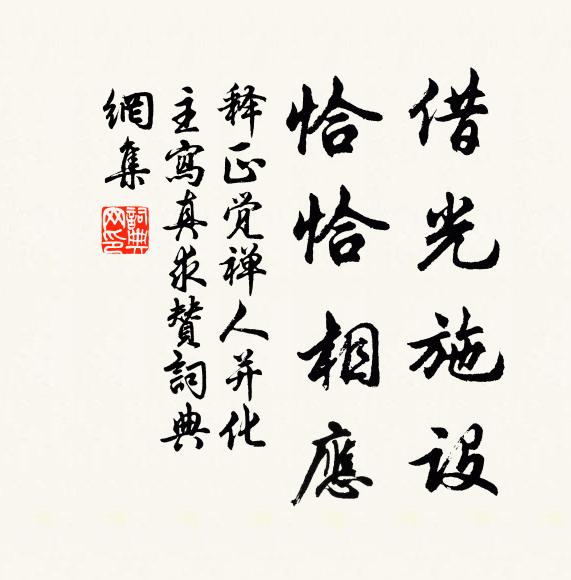 借光施設
恰恰相應
释正觉禅人并化
主寫真求贊詞典
網集
詞典
网印